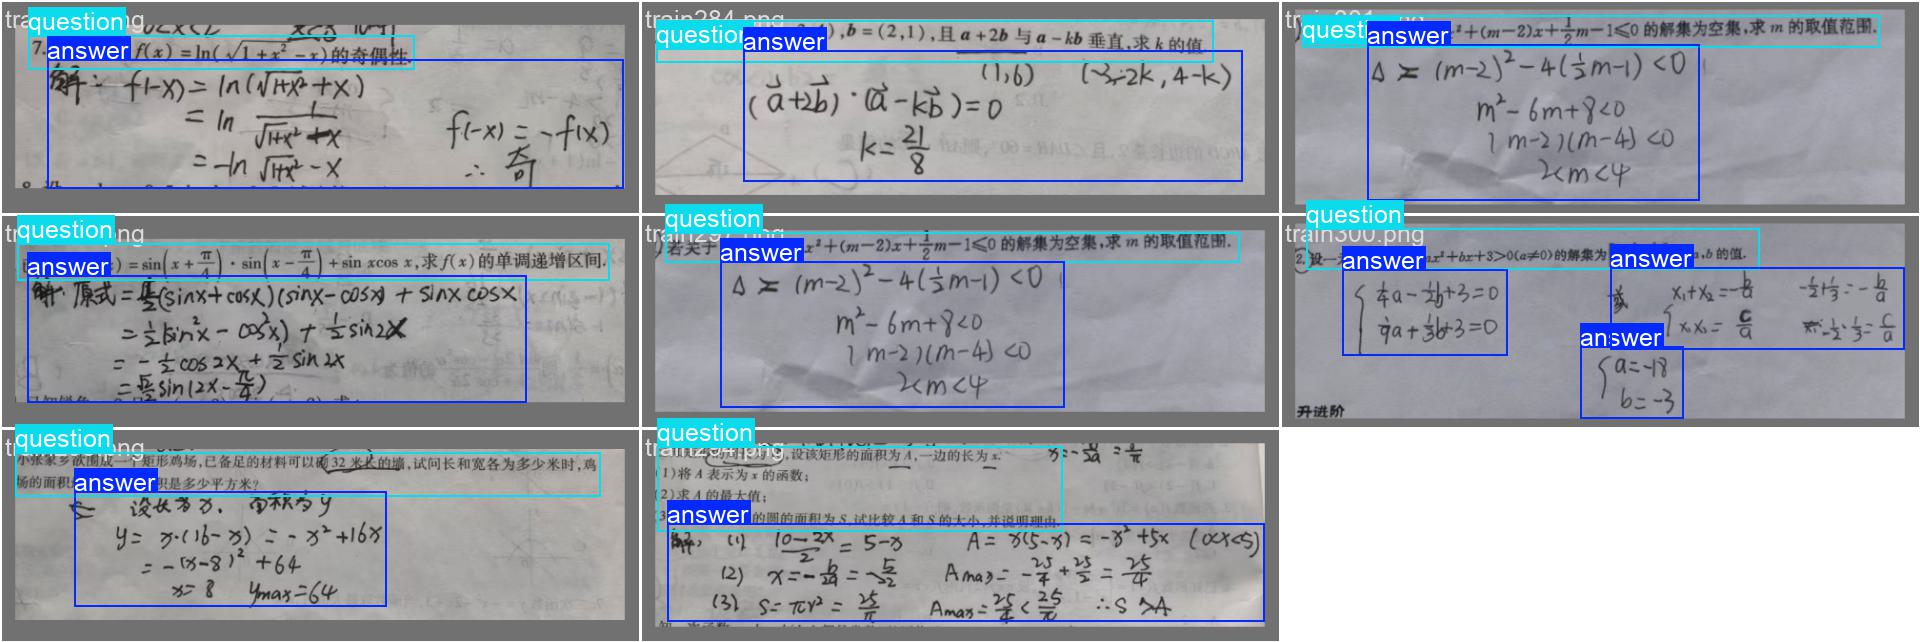 question
answer
7.
f(x)=ln(√1+x²-x)的奇偶性.
解: f(-x)= ln(√1+x²+x)
= ln 1/(√1+x²+x)
= -ln √1+x² - x
f(-x) = -f(x)
∴ 奇
train284.png
question
answer
,b=(2,1),且a+2b与a-kb垂直,求k的值.
(1,6) (-3-2k, 4-k)
(a+2b)·(a-kb)=0
k=21/8
question
answer
x²+(m-2)x+1/2m-1≤0的解集为空集,求m的取值范围.
Δ = (m-2)²-4(½m-1)<0
m²-6m+8<0
(m-2)(m-4)<0
2<m<4
question
answer
)=sin(x+π/4)·sin(x-π/4)+sin xcos x,求f(x)的单调递增区间.
解: 原式=½(sinx+cosx)(sinx-cosx)+sinxcosx
=½(sin²x-cos²x)+½sin2x
=-½cos2x+½sin2x
=√2/2sin(2x-π/4)
question
answer
若关于
x²+(m-2)x+1/2m-1≤0的解集为空集,求m的取值范围.
Δ = (m-2)²-4(½m-1)<0
m²-6m+8<0
(m-2)(m-4)<0
2<m<4
question
train300.png
answer
answer
2.设一
ax²+bx+3>0(a≠0)的解集为
a,b的值.
{ ¼a-½b+3=0
⅑a+⅓b+3=0
或 { x₁+x₂=-b/a
x₁x₂=c/a
-½+⅓=-b/a
-½·⅓=c/a
answer
{ a=-18
b=-3
升进阶
question
小张家乡欲围成一个矩形鸡场,已备足的材料可以砌32米长的墙,试问长和宽各为多少米时,鸡
场的面积
积是多少平方米?
answer
设长为x, 面积为y
y= x·(16-x) = -x²+16x
= -(x-8)²+64
x=8 ymax=64
question
train294.png
,设该矩形的面积为A,一边的长为x.
(1)将A表示为x的函数;
(2)求A的最大值;
answer
的圆的面积为S,试比较A和S的大小,并说明理由.
解: (1) (10-2x)/2 = 5-x A= x(5-x) = -x²+5x (0<x<5)
(2) x=-b/2a = -5/-2 Amax= -25/4+25/2 = 25/4
(3) S=πr²= 25/π Amax=25/4<25/π ∴S>A